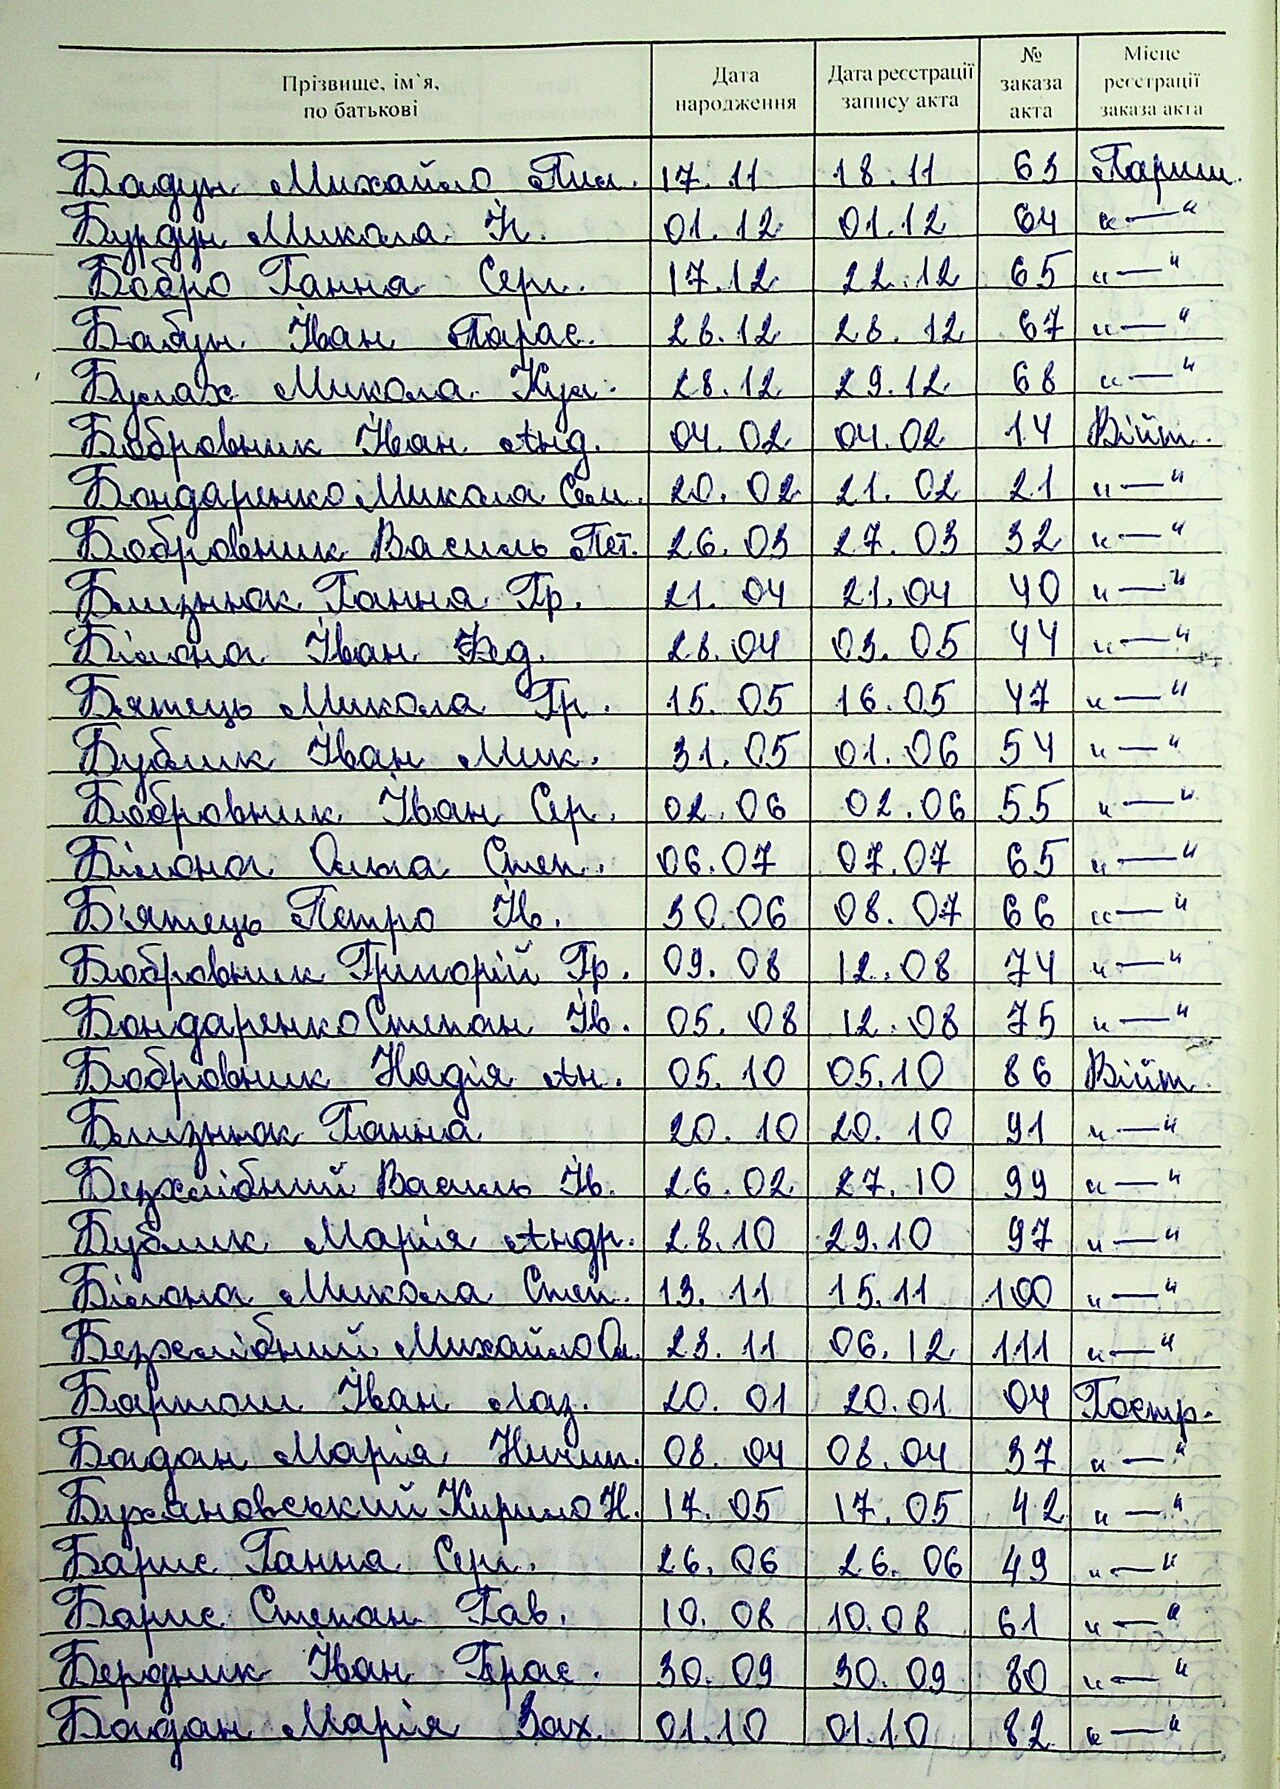 Прізвище, ім`я, по батькові Дата народження Дата реєстрації запису акта № заказа акта Місце реєстрації заказа акта
Бадун Михайло Пил. 17.11 18.11 63 Париш.
Бурдун Микола Й. 01.12 01.12 64 "—"
Бобро Ганна Серг. 17.12 22.12 65 "—"
Бабун Іван Тарас. 28.12 28.12 67 "—"
Булах Микола Кул. 28.12 29.12 68 "—"
Бобровник Іван Анд. 04.02 04.02 14 Війт.
Бондаренко Микола Сем. 20.02 21.02 21 "—"
Бобровник Василь Пет. 26.03 27.03 32 "—"
Близнюк Ганна Гр. 21.04 21.04 40 "—"
Білона Іван Фед. 28.04 03.05 44 "—"
Бятець Микола Гр. 15.05 16.05 47 "—"
Бублик Іван Мик. 31.05 01.06 54 "—"
Бобровник Іван Сер. 02.06 02.06 55 "—"
Білона Ольга Степ. 06.07 07.07 65 "—"
Б'ятець Петро Ів. 30.06 08.07 66 "—"
Бобровник Григорій Гр. 09.08 12.08 74 "—"
Бондаренко Степан Ів. 05.08 12.08 75 "—"
Бобровник Надія Ан. 05.10 05.10 86 Війт.
Близнюк Ганна 20.10 20.10 91 "—"
Безхлібний Василь Ів. 26.02 27.10 99 "—"
Бублик Марія Андр. 28.10 29.10 97 "—"
Білона Микола Степ. 13.11 15.11 100 "—"
Безхлібний Михайло Ол. 23.11 06.12 111 "—"
Бартош Іван Лаз. 20.01 20.01 04 Гостр.
Богдан Марія Ничип. 08.04 08.04 37 "—"
Буяновський Кирило Н. 17.05 17.05 42 "—"
Борис Ганна Серг. 26.06 26.06 49 "—"
Борис Степан Гав. 10.08 10.08 61 "—"
Бердник Іван Герас. 30.09 30.09 80 "—"
Богдан Марія Зах. 01.10 01.10 82 "—"